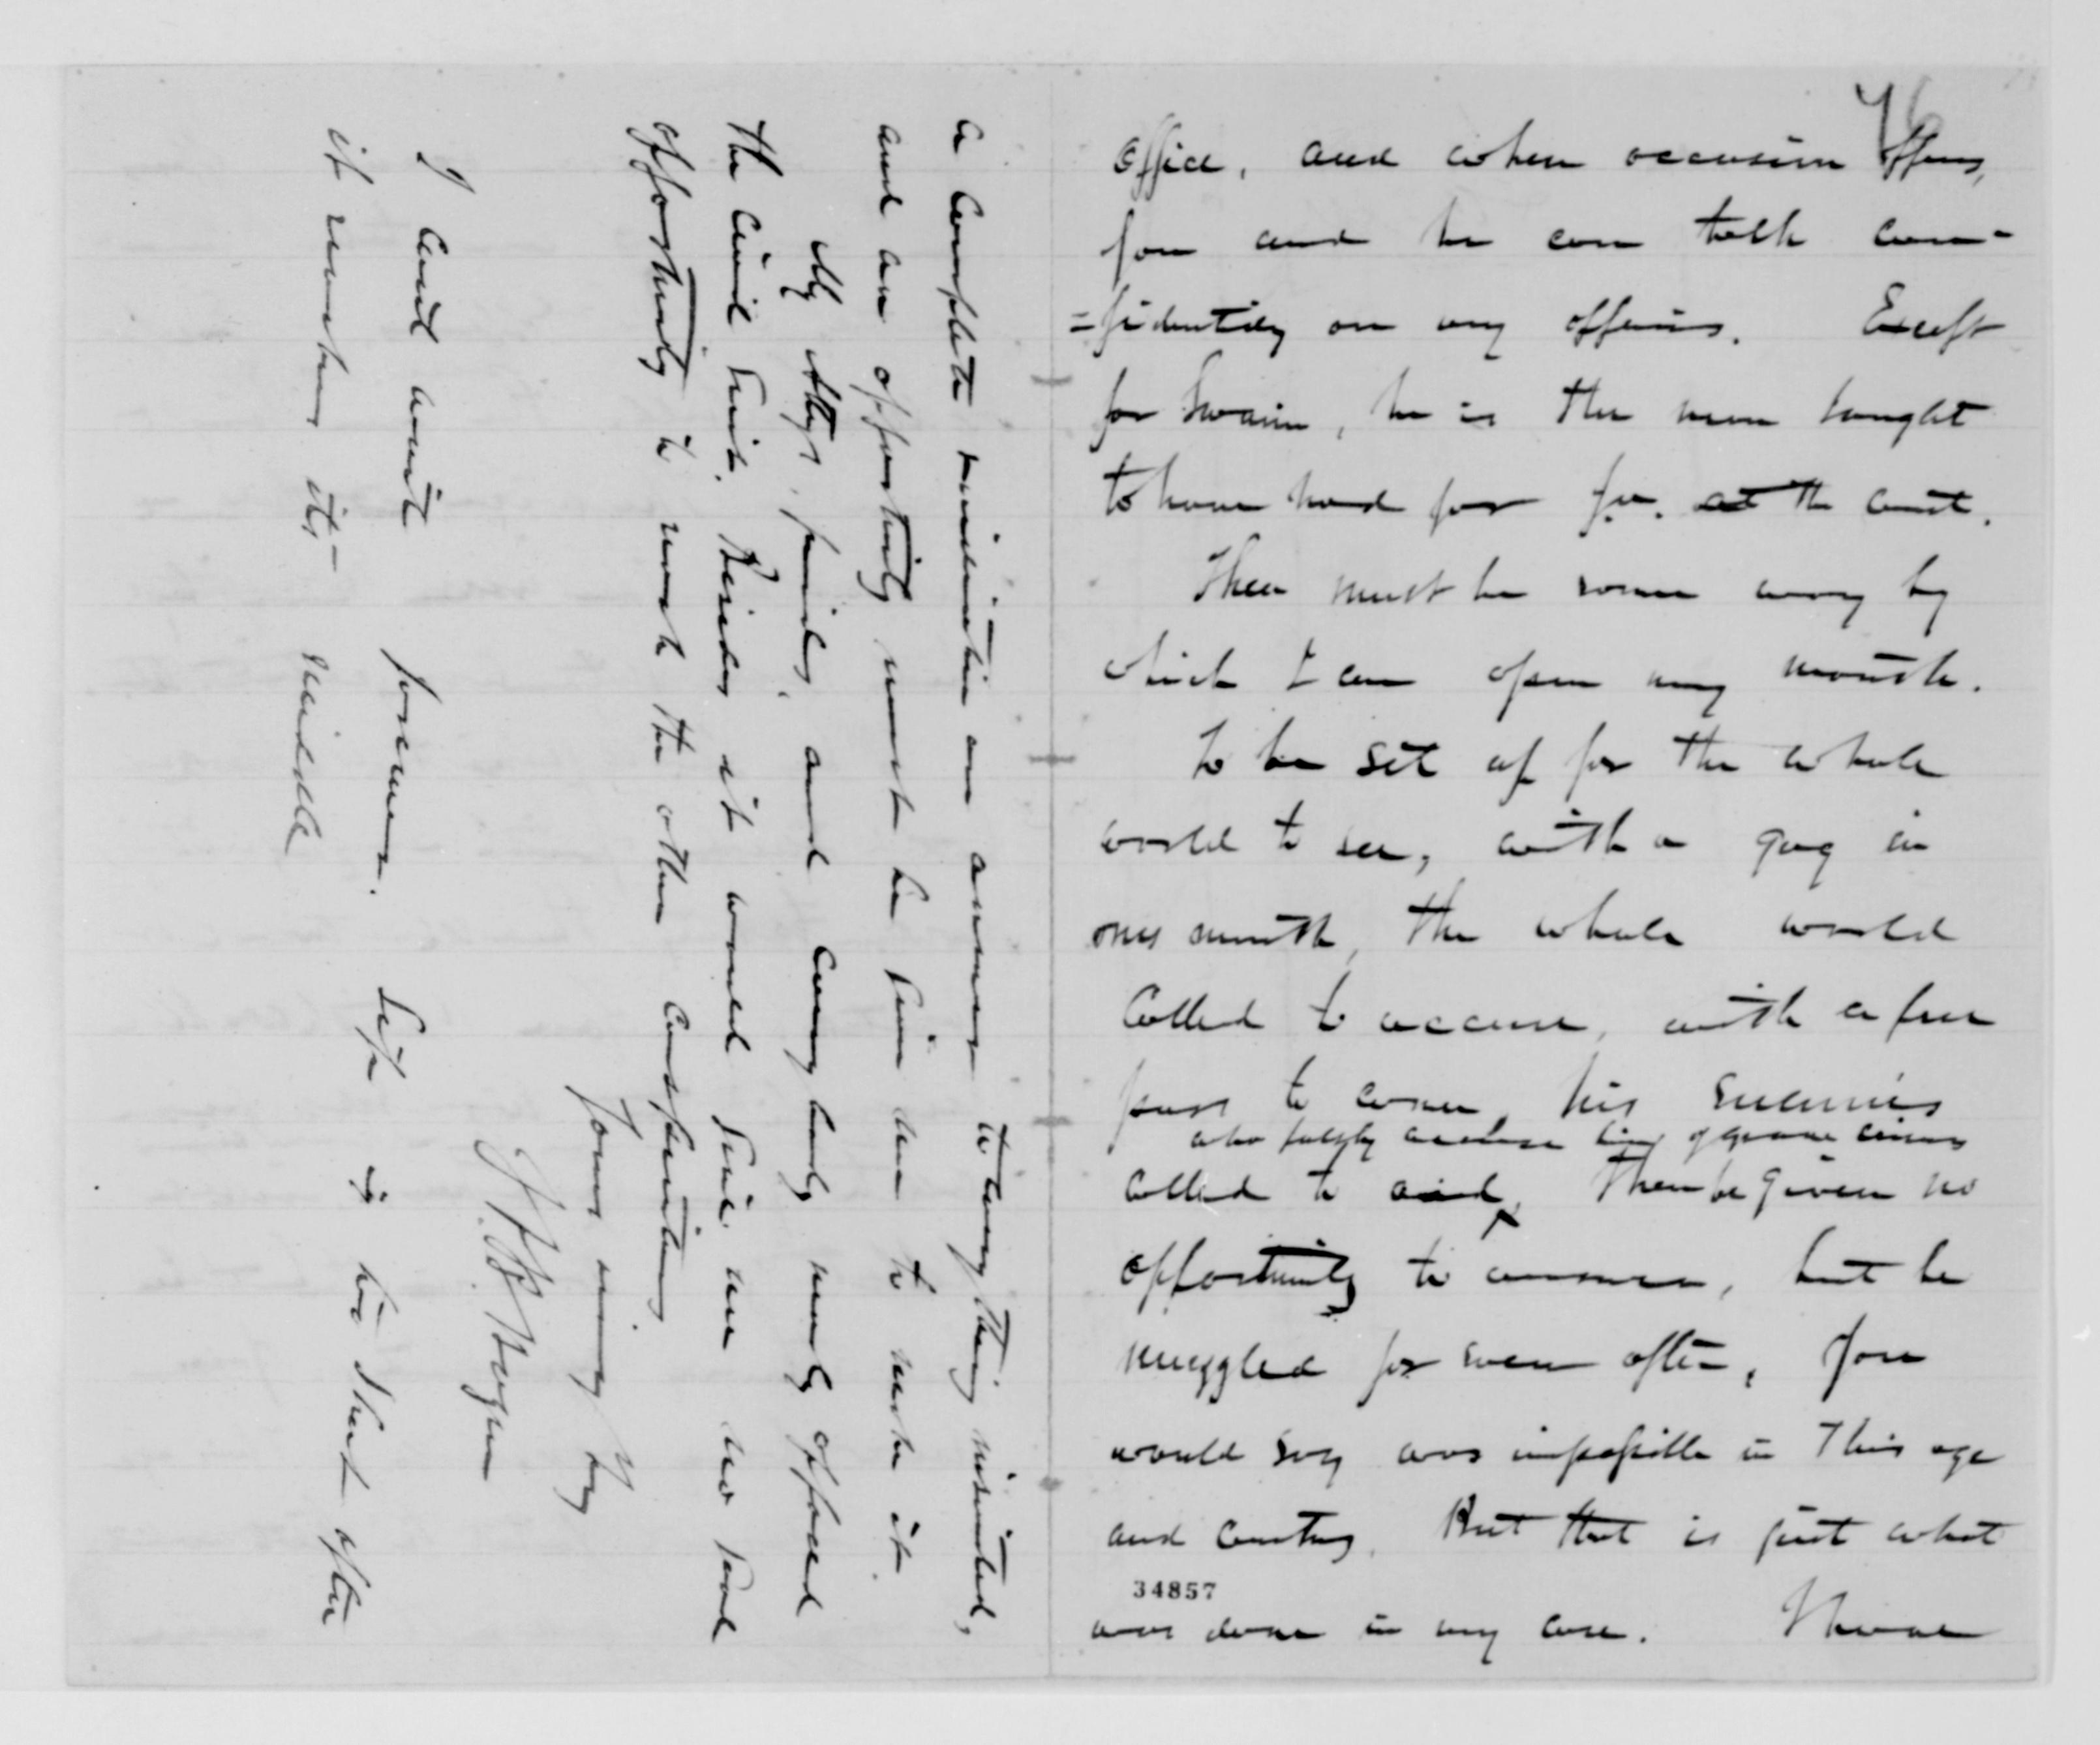 76
office, and when occasion offers,
you and he can talk con-
=fidently on my affairs. Except
for Swaim, he is the man sought
to have had for J.A. at the court.
There must be some way by
which I can open my mouth.
To be set up for the whole
world to see, with a gag in
ones mouth, the whole world
called to accuse, with a free
pass to come, his enemies
who falsely accuse him of grave crimes
called to aid, then be given no
opportunity to answer, but be
muggled for ever after, you
would say was impossible in this age
and country. But that is just what
was done in my case. I have
34857
a complete vindication an answer to everything insinuated,
and an opportunity must be given me to make it.
My Attys, family, and everybody nearly opposed
the civil suit. Besides it would give me no good
opportunity to reach the other conspirators.
Yours very truly
I cant wait forever. Life is too short after
it reaches its middle